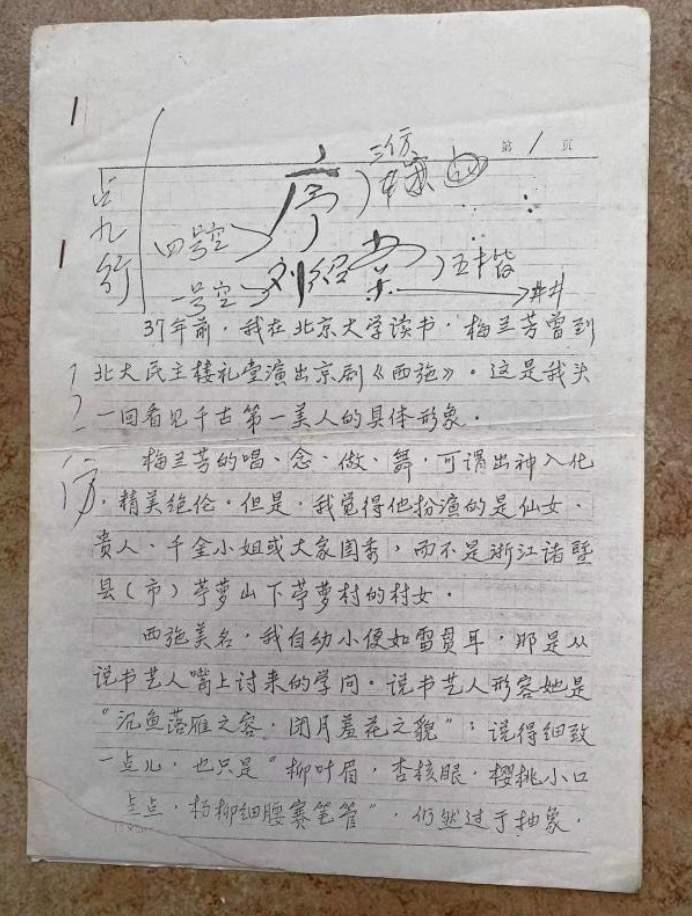 第 1 页
序
三仿
占九行
四号空
刘绍棠
五楷
一号空
37年前，我在北京大学读书，梅兰芳曾到
北大民主楼礼堂演出京剧《西施》。这是我头
一回看见千古第一美人的具体形象。
梅兰芳的唱、念、做、舞，可谓出神入化
，精美绝伦。但是，我觉得他扮演的是仙女、
贵人、千金小姐或大家闺秀，而不是浙江诸暨
县（市）苎萝山下苎萝村的村女。
西施美名，我自幼小便如雷贯耳，那是从
说书艺人嘴上讨来的学问。说书艺人形容她是
“沉鱼落雁之容，闭月羞花之貌”；说得细致
一点儿，也只是“柳叶眉，杏核眼，樱桃小口
一点点，杨柳细腰赛笔管”，仍然过于抽象。